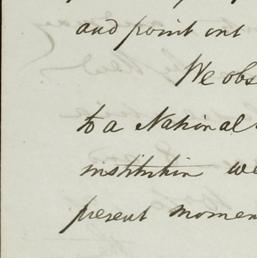 and point out
We obs
to a National
institution we
present momen